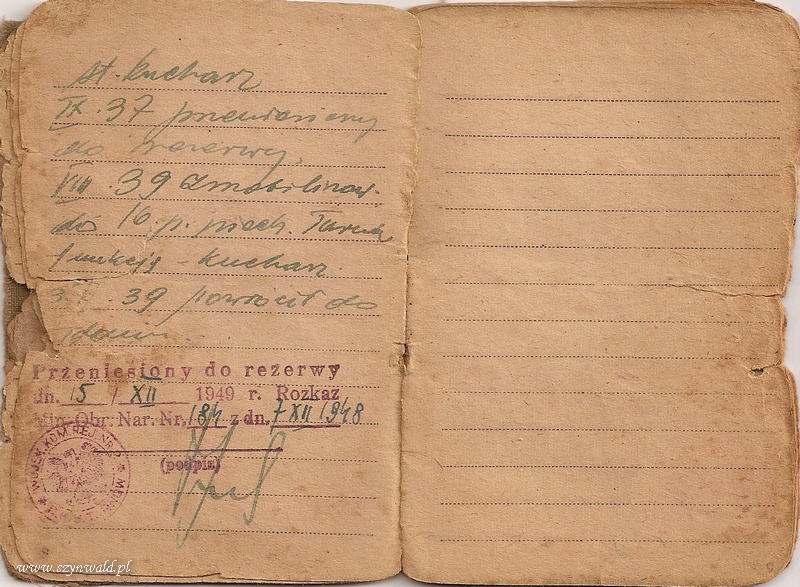 st. kucharz
IX. 37 przeniesiony
do rezerwy,
VIII 39 zmobilizow.
do 16 p. piech. Tarnów
funkcja - kucharz.
39 powrócił do
domu.
Przeniesiony do rezerwy
dn. 15 / XII 1949 r. Rozkaz
Min. Obr. Nar. Nr. z dn. 7 XII 1948
(podpis)
WOJSK. KOM. REJ. NR.
www.szynwald.pl